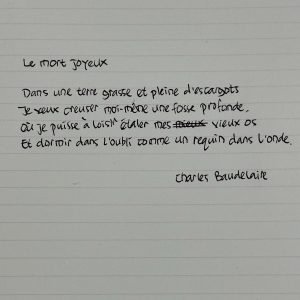 Le mort joyeux
Dans une terre grasse et pleine d'escargots
Je veux creuser moi-même une fosse profonde,
Où je puisse à loisir étaler mes vieux os
Et dormir dans l'oubli comme un requin dans l'onde.
Charles Baudelaire